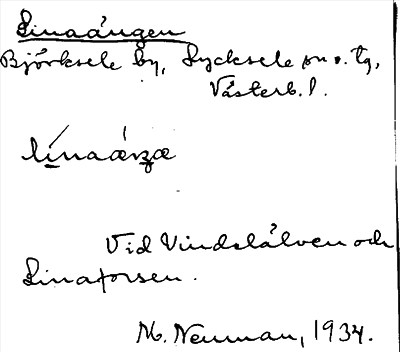 Linaängen
Björksele by, Lycksele sn o. tg,
Västerb. l.
Vid Vindelälven och
Linaforsen.
M. Neuman, 1934.